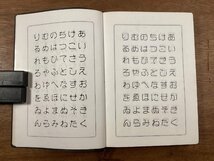 あいうえおかきく
けこさしすせそた
ちつてとなにぬね
のはひふへほまみ
むめもやゆよら
りるれろわゑん
あいうえおかきく
けこさしすせそた
ちつてとなにぬね
のはひふへほまみ
むめもやゆよら
りるれろわゑん